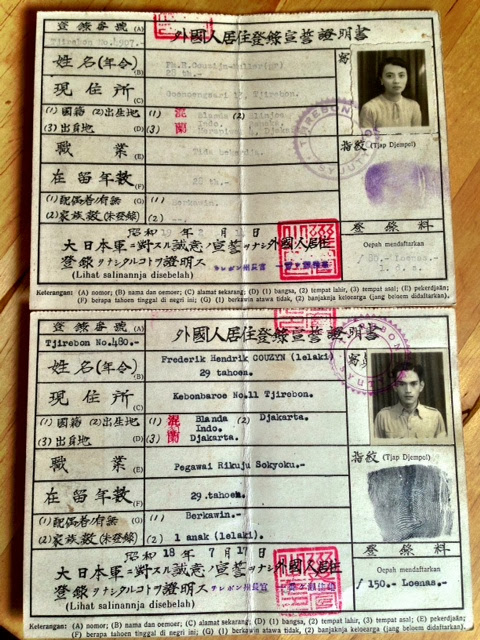 登錄番號 (A)
Tjirebon No.
外國人居住登錄宣誓證明書
姓名(年令) (B)
28 th.-
現住所 (C)
Tjirebon.
(1) 國籍 (2) 出生地
(3) 出身地 (D)
(1) 混 Blanda (2)
Indo.
(3) 蘭
職業 (E)
在留年數 (F)
28 th.-
(1) 配偶者ノ有無 (G)
(2) 家族數(未登錄)
(1) Berkawin.-
(2) --.
指紋 (Tjap Djempol)
昭和
大日本軍ニ對スル誠意ノ宣誓ヲナシ外國人居住
登錄ヲナシタルコトヲ證明ス
(Lihat salinannja disebelah)
チレボン州長官
登錄料
Oepah mendaftarkan
Keterangan: (A) nomor; (B) nama dan oemoer; (C) alamat sekarang; (D) (1) bangsa, (2) tempat lahir, (3) tempat asal; (E) pekerdjaän;
(F) berapa tahoen tinggal di negri ini; (G) (1) berkawin atawa tidak, (2) banjaknja keloearga (jang beloem didaftarkan).
登錄番號 (A)
Tjirebon No.480.-
外國人居住登錄宣誓證明書
姓名(年令) (B)
Frederik Hendrik COUZYN (lelaki)
29 tahoen.
現住所 (C)
Kebonbaroe No.11 Tjirebon.
(1) 國籍 (2) 出生地
(3) 出身地 (D)
(1) 混 Blanda (2) Djakarta.
Indo.
(3) 蘭 Djakarta.
職業 (E)
Pegawai Rikuju Sokyoku.-
在留年數 (F)
29.tahoen.
(1) 配偶者ノ有無 (G)
(2) 家族數(未登錄)
(1) Berkawin.-
(2) 1 anak (lelaki).
指紋 (Tjap Djempol)
昭和 18 年 7 月 17 日
大日本軍ニ對スル誠意ノ宣誓ヲナシ外國人居住
登錄ヲナシタルコトヲ證明ス
(Lihat salinannja disebelah)
チレボン州長官
登錄料
Oepah mendaftarkan
f 150.- Loenas.-
Keterangan: (A) nomor; (B) nama dan oemoer; (C) alamat sekarang; (D) (1) bangsa, (2) tempat lahir, (3) tempat asal; (E) pekerdjaän;
(F) berapa tahoen tinggal di negri ini; (G) (1) berkawin atawa tidak, (2) banjaknja keloearga (jang beloem didaftarkan).